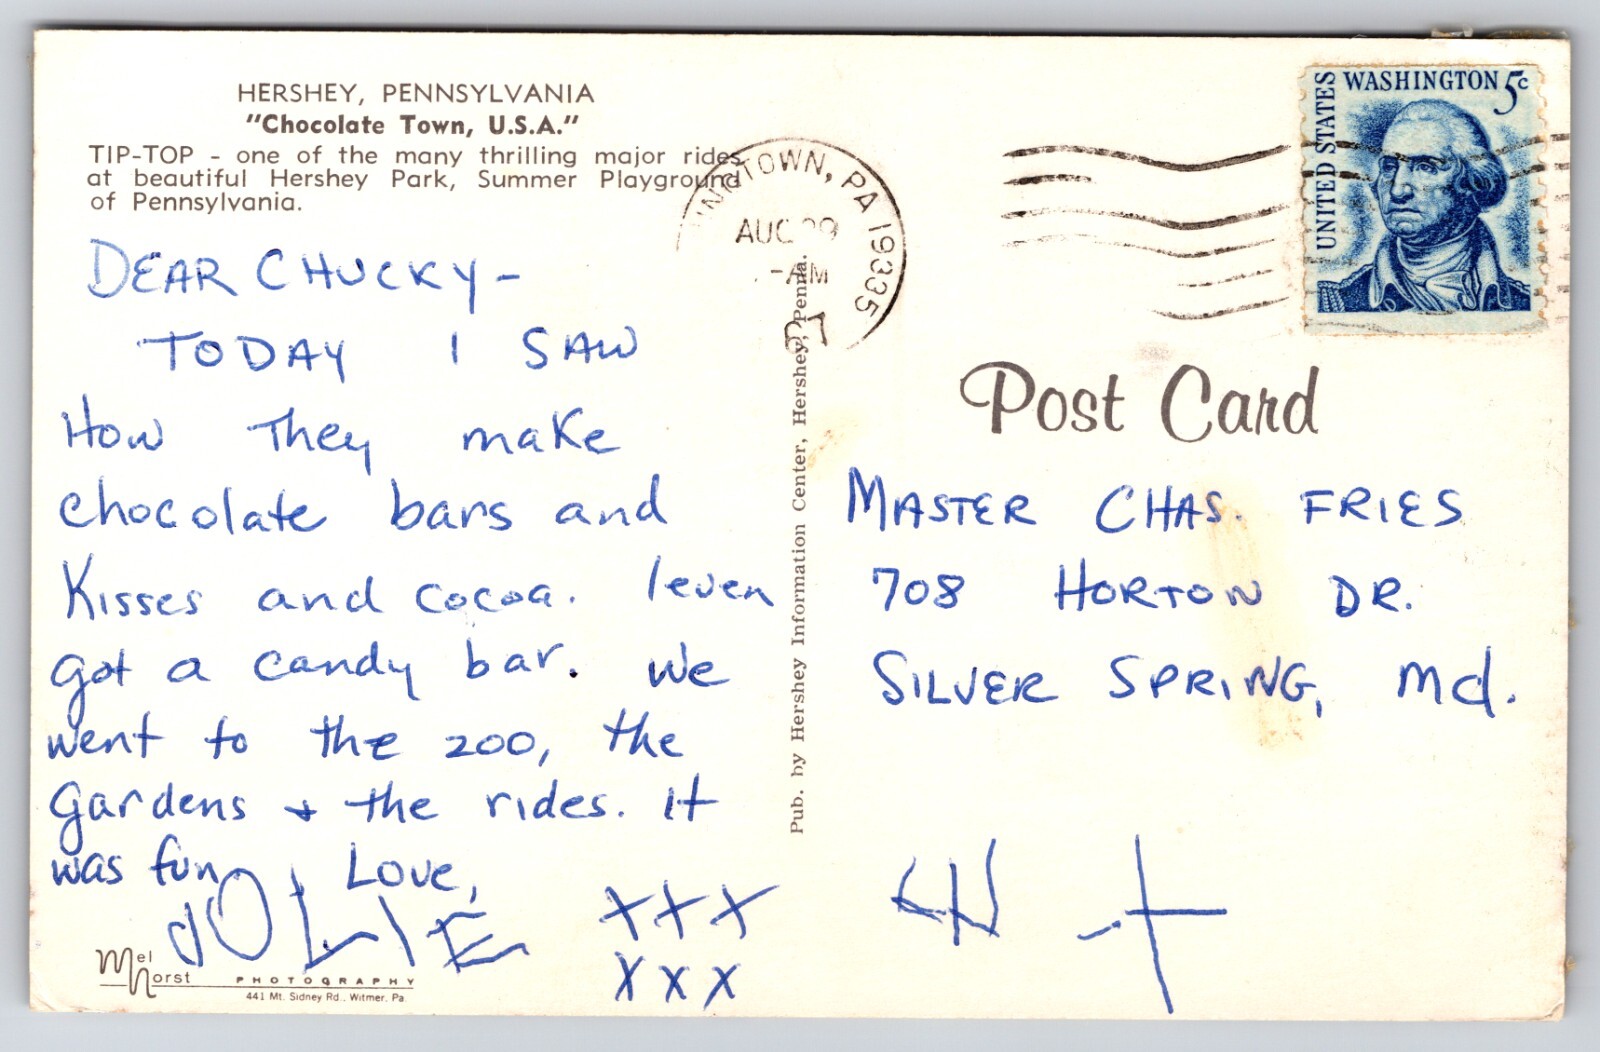 HERSHEY, PENNSYLVANIA
"Chocolate Town, U.S.A."
TIP-TOP - one of the many thrilling major rides
at beautiful Hershey Park, Summer Playground
of Pennsylvania.
DEAR CHUCKY -
TODAY I SAW
How they make
chocolate bars and
Kisses and cocoa. I even
got a candy bar. We
went to the zoo, the
gardens + the rides. It
was fun. Love,
JOLIE XXX
XXX
Mel Horst PHOTOGRAPHY
441 Mt. Sidney Rd., Witmer, Pa.
Pub. by Hershey Information Center, Hershey, Penna.
TOWN, PA 19335
AUG 29
-AM
UNITED STATES
WASHINGTON 5c
Post Card
MASTER CHAS. FRIES
708 HORTON DR.
SILVER SPRING, Md.